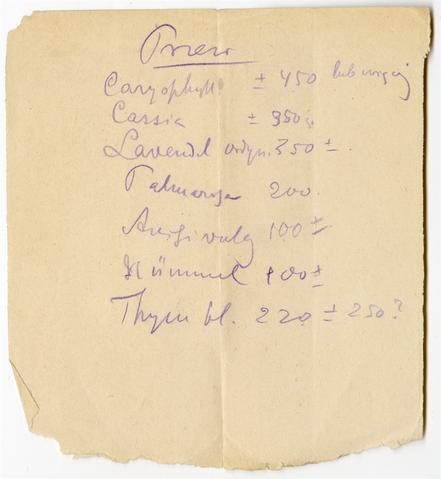 Caryophyll ± 450 lub więcej
Cassia ± 350
Lavendel ordyn. 350 ±.
Palmarosa 200.
Anisi vulg 100 ±
Kümmel 100 ±
Thym bl. 220 ± 250?